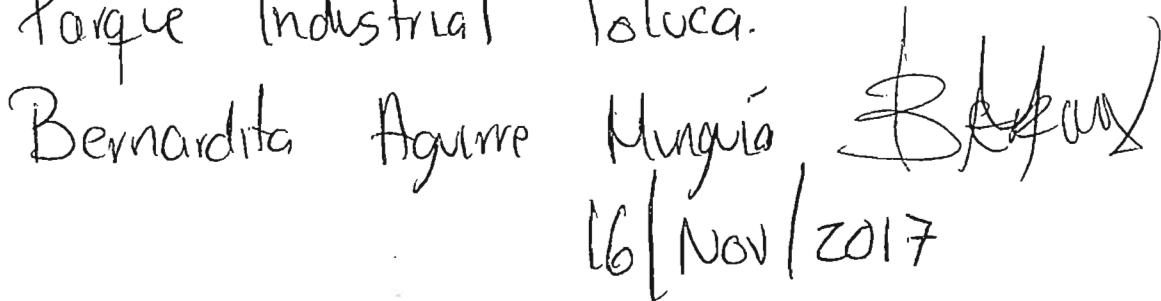 Parque Industrial Toluca.
Bernardita Aguirre Munguía
16/Nov/2017